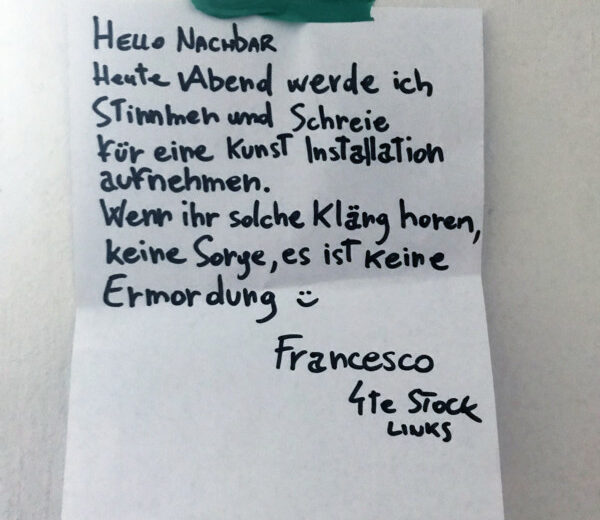 Hello Nachbar
Heute Abend werde ich
Stimmen und Schreie
für eine Kunst Installation
aufnehmen.
Wenn ihr solche Kläng horen,
keine Sorge, es ist keine
Ermordung ü
Francesco
4te Stock
Links